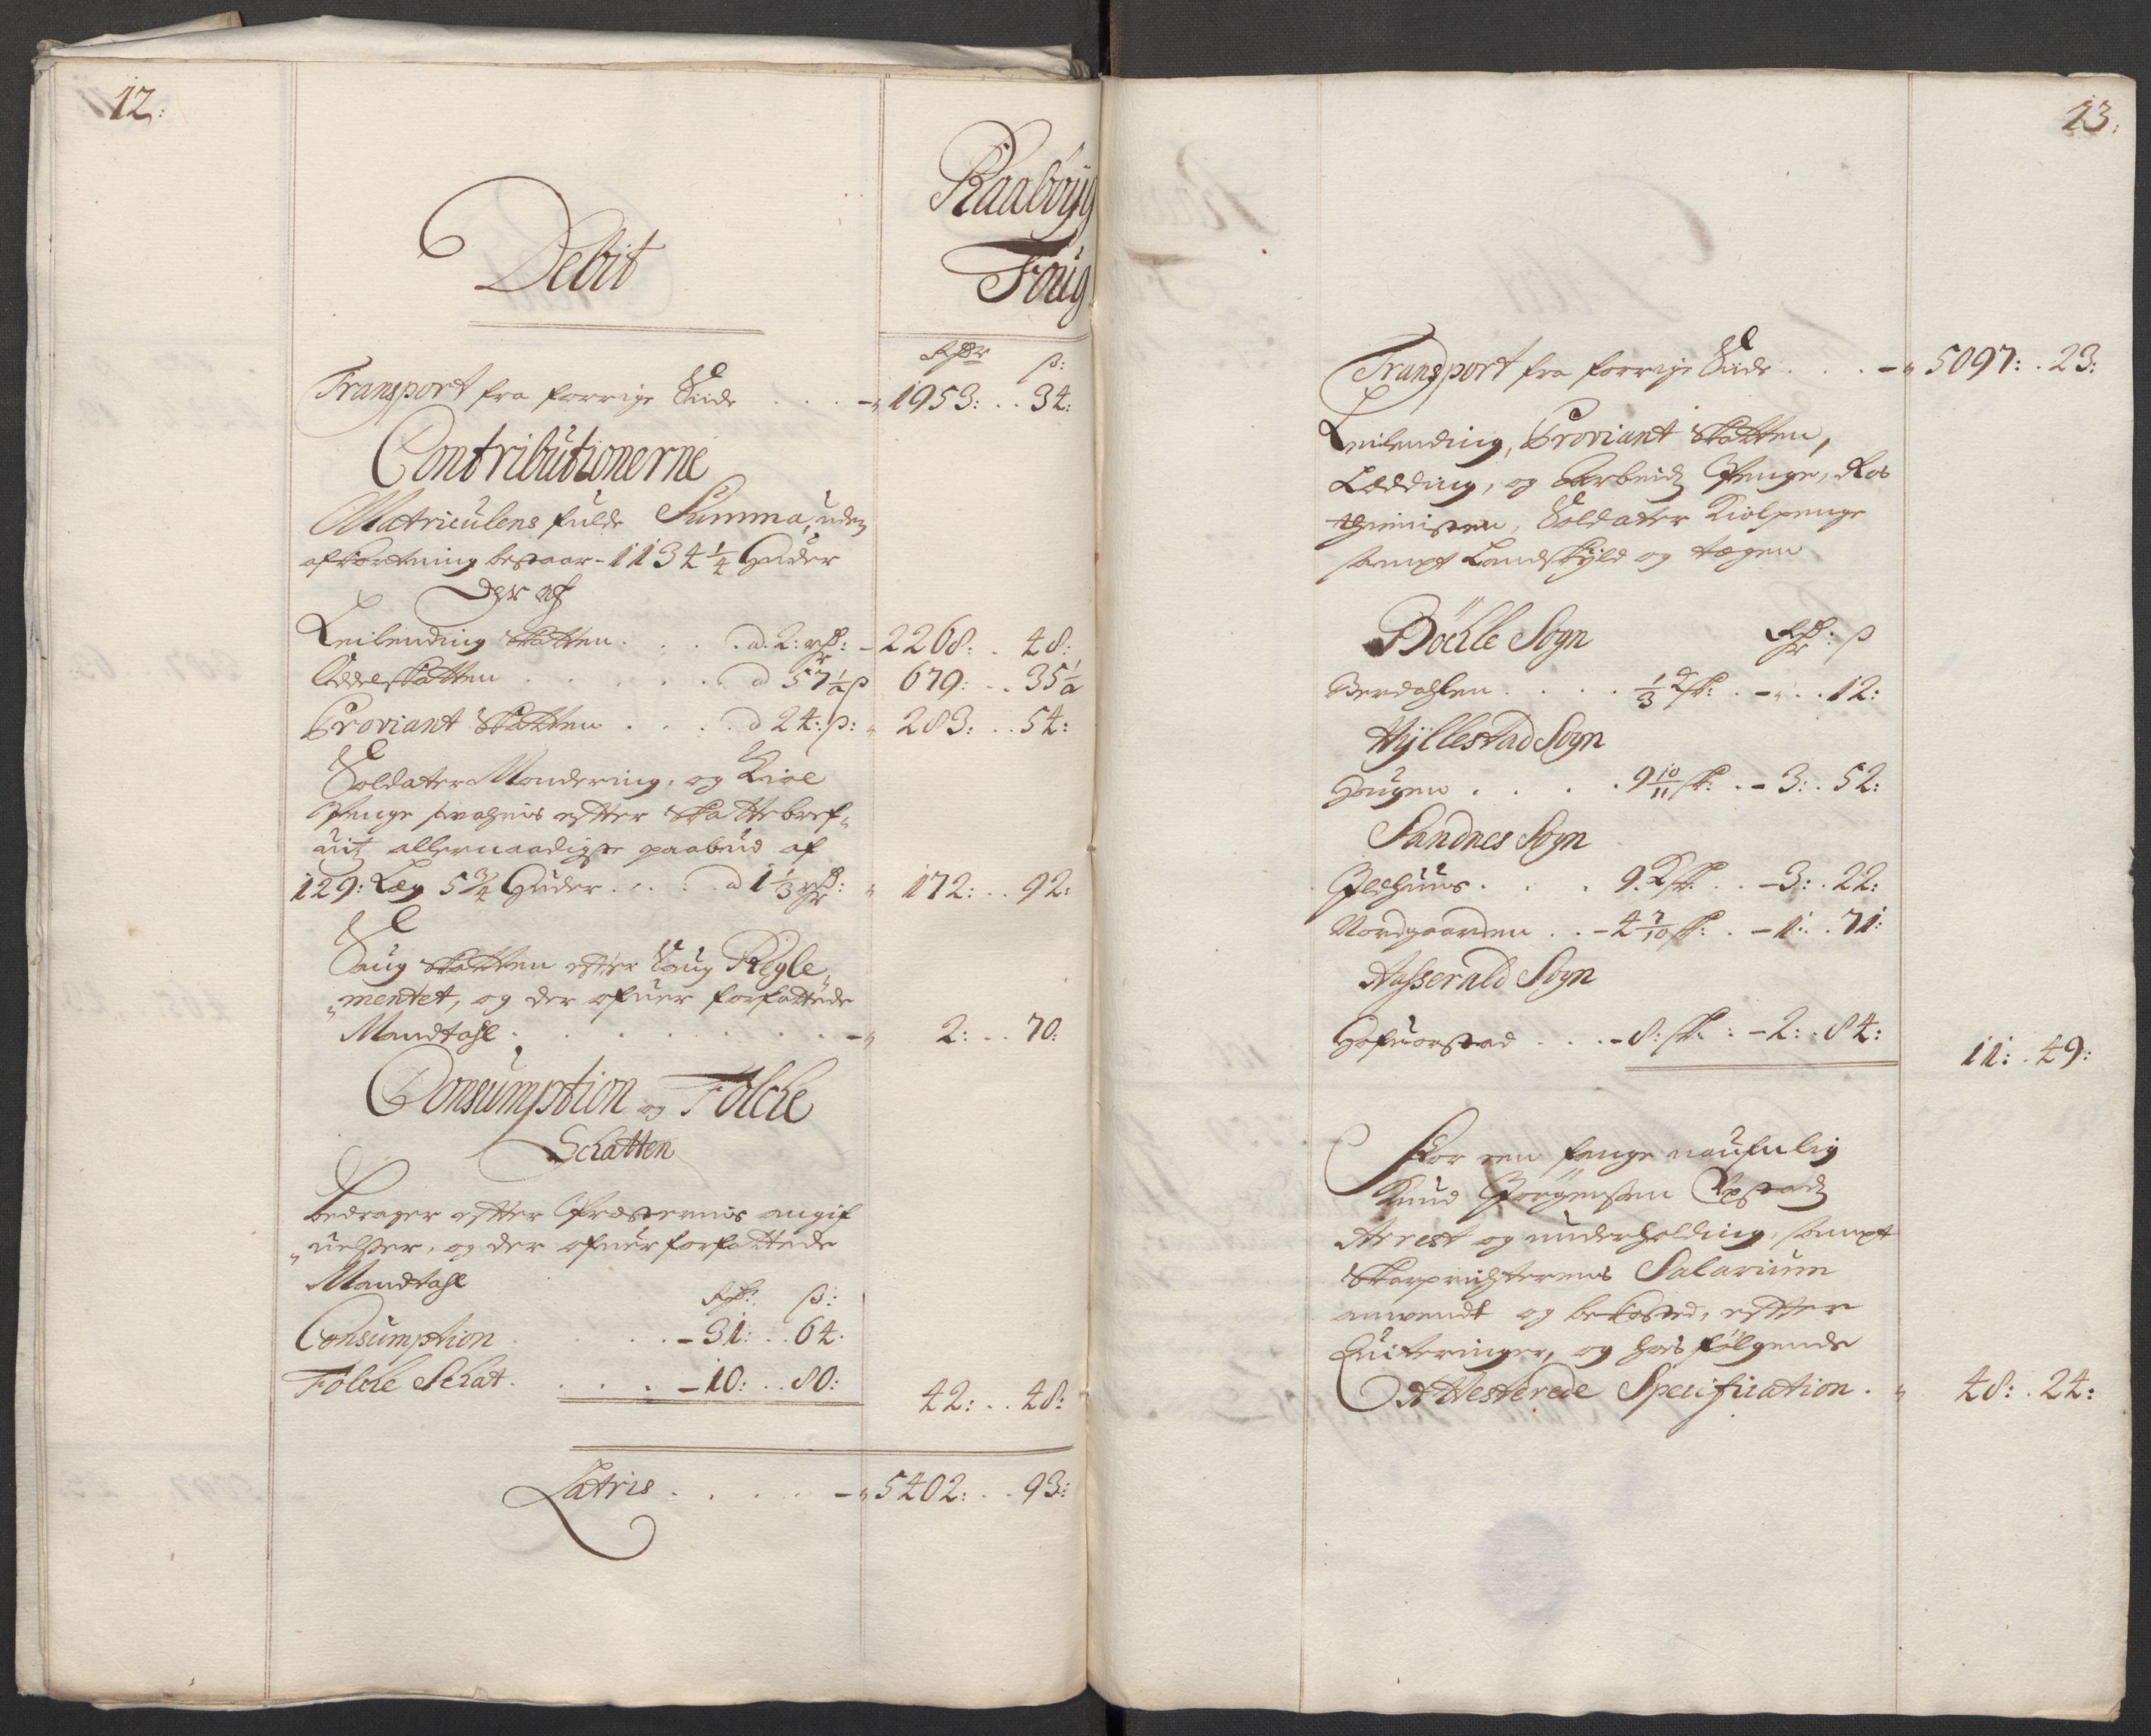 12.
Debit
Raabÿg
Foug
Rdr ß:
Transport fra forrige Side . . . 1953: . . 34:
Contributionerne
Matriculens fulde Summa, uden
afkortning bestaar - 1134 1/4 Huder
Der af
Leilending Skatten . . . . a 2: rd: - 2268: . . 48:
Odelskatten . . . . . a 57 1/2 ß 679: . . 35 1/2
Proviant Skatten . . . . a 24: ß: 283: . . 54:
Soldater Mondering, og Kiole
Penge svahris efter Skattebref-
uitz allernaadigste paabud af
129: Læg 5 3/4 Huder . . . a 1 1/3 rd: 172: . . 92:
Saug Skatten efter Saug Regle-
mentet, og der ofuer forfattede
Mandtahl . . . . . . . 2: . . 70:
Consumption og Folche
Schatten
Bedrager efter Præsternis angif-
uelsser, og der ofuer forfattede
Mandtahl
Rd: ß:
Consumption . . . . - 31: . . 64.
Folche Schat . . . . - 10: . . 80:
42: . . 48:
Latris . . . . . 5402: . . 93:
13.
Transport fra forrige Side . . . 5097: . 23:
Leilending, Proviant Skatten,
Lædding, og Arbeidz Penge, Ros
thienisten, Soldater Kiolpenge
sampt Landskÿld og tægen
Böchle Sogn Rd: ß
Berdahlen . . . . 1/3 Sk: . - . . 12:
Hÿllestad Sogn
Hougen . . . . 9 10/11 sk: . - 3: . 52:
Sandnes Sogn
Jldhuus . . . 9. Sk: . . - 3: . 22:
Nordgaarden . . - 4 7/10 sk: . - 1: . 71:
Aasserald Sogn
Hofuorstad . . . - 8: sk: . - 2: . 84:
11: . 49:
For een fange naufnlig
Knud Jörgensen Epstadz
Arrest og underholding, sampt
Skarprichterens Salarium
anvendt og bekosted, efter
Quiteringer, og hos fölgende
Attesterede Specification . 48: . 24: